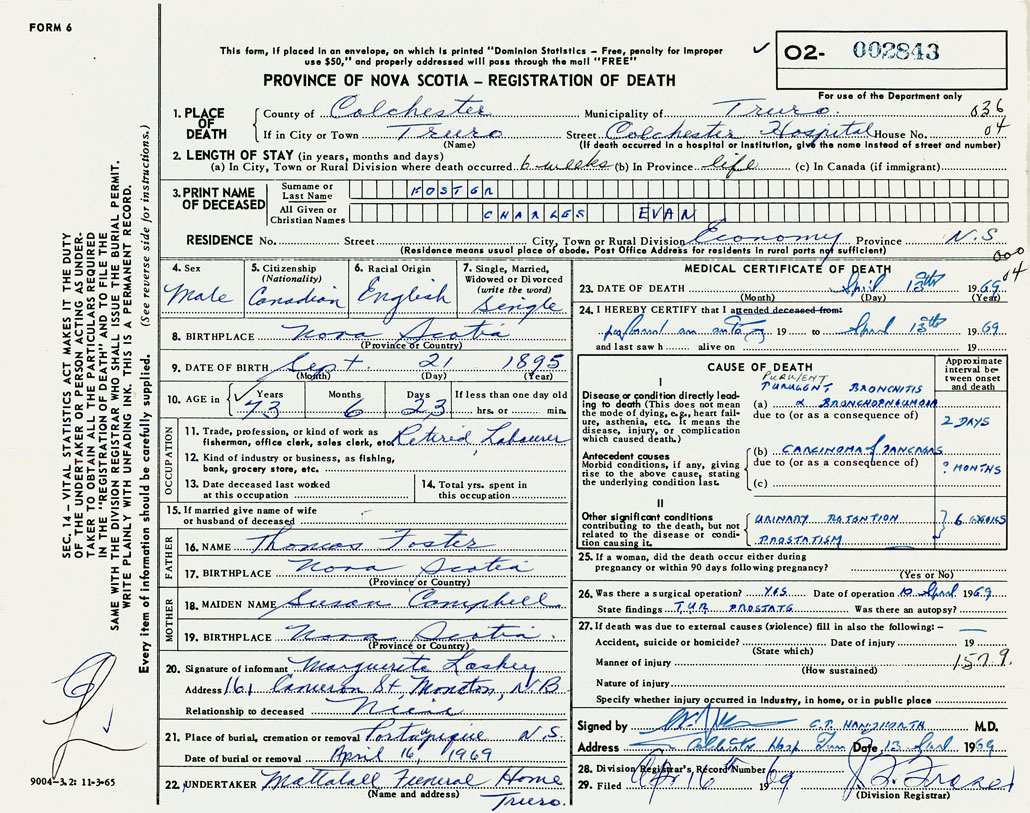 FORM 6
This form, if placed in an envelope, on which is printed "Dominion Statistics – Free, penalty for improper
use $50," and properly addressed will pass through the mail "FREE"
✓ 02- 002843
PROVINCE OF NOVA SCOTIA – REGISTRATION OF DEATH
For use of the Department only
1. PLACE OF DEATH
County of Colchester Municipality of Truro. 036
If in City or Town Truro Street Colchester Hospital House No. 04
(Name) (If death occurred in a hospital or institution, give the name instead of street and number)
2. LENGTH OF STAY (in years, months and days)
(a) In City, Town or Rural Division where death occurred 6 weeks (b) In Province life (c) In Canada (if immigrant)
3. PRINT NAME OF DECEASED
Surname or Last Name FOSTER
All Given or Christian Names CHARLES EVAN
RESIDENCE No. Street City, Town or Rural Division Economy Province N.S.
(Residence means usual place of abode. Post Office Address for residents in rural parts not sufficient)
000
04
4. Sex
Male
5. Citizenship
(Nationality)
Canadian
6. Racial Origin
English
7. Single, Married,
Widowed or Divorced
(write the word)
Single
8. BIRTHPLACE Nova Scotia
(Province or Country)
9. DATE OF BIRTH Sept. 21 1895
(Month) (Day) (Year)
10. AGE in ✓ Years Months Days If less than one day old
73 6 23 hrs. or min.
OCCUPATION
11. Trade, profession, or kind of work as
fisherman, office clerk, sales clerk, etc. Retired Labourer
12. Kind of industry or business, as fishing,
bank, grocery store, etc.
13. Date deceased last worked
at this occupation
14. Total yrs. spent in
this occupation
15. If married give name of wife
or husband of deceased
FATHER
16. NAME Thomas Foster
17. BIRTHPLACE Nova Scotia
(Province or Country)
MOTHER
18. MAIDEN NAME Susan Campbell
19. BIRTHPLACE Nova Scotia.
(Province or Country)
20. Signature of informant Marguerite
Address 161 Cameron St, Moncton, N.B.
Relationship to deceased Niece
21. Place of burial, cremation or removal Portapique N.S.
Date of burial or removal April 16, 1969
22. UNDERTAKER Mattatall Funeral Home
(Name and address) Truro.
MEDICAL CERTIFICATE OF DEATH
23. DATE OF DEATH April 13th 1969
(Month) (Day) (Year)
24. I HEREBY CERTIFY that I attended deceased from:
19 to April 13th 1969
and last saw h alive on 19
CAUSE OF DEATH
Approximate
interval between
onset
and death
I
Disease or condition directly leading
to death (This does not mean
the mode of dying, e.g., heart failure,
asthenia, etc. It means the
disease, injury, or complication
which caused death.)
PURULENT
PURULENT BRONCHITIS
(a) & BRONCHOPNEUMONIA
due to (or as a consequence of)
2 DAYS
Antecedent causes
Morbid conditions, if any, giving
rise to the above cause, stating
the underlying condition last.
(b) CARCINOMA of PANCREAS
due to (or as a consequence of)
(c)
? MONTHS
II
Other significant conditions
contributing to the death, but not
related to the disease or condition
causing it.
URINARY RETENTION
PROSTATISM
6 WEEKS
25. If a woman, did the death occur either during
pregnancy or within 90 days following pregnancy?
(Yes or No)
26. Was there a surgical operation? YES Date of operation 10 April 1969
State findings T.U.R PROSTATE Was there an autopsy?
27. If death was due to external causes (violence) fill in also the following: –
Accident, suicide or homicide? Date of injury 19
(State which)
Manner of injury 157.9.
(How sustained)
Nature of injury
Specify whether injury occurred in industry, in home, or in public place
Signed by M.D.
Address Hosp Date 13 April 1969
28. Division Registrar's Record Number
29. Filed Apr 16th 1969
(Division Registrar)
SEC. 14 – VITAL STATISTICS ACT MAKES IT THE DUTY
OF THE UNDERTAKER OR PERSON ACTING AS UNDERTAKER
TO OBTAIN ALL THE PARTICULARS REQUIRED
IN THE "REGISTRATION OF DEATH" AND TO FILE THE
SAME WITH THE DIVISION REGISTRAR WHO SHALL ISSUE THE BURIAL PERMIT.
WRITE PLAINLY WITH UNFADING INK. THIS IS A PERMANENT RECORD.
Every item of information should be carefully supplied. (See reverse side for instructions.)
9004-3.2: 11-3-65